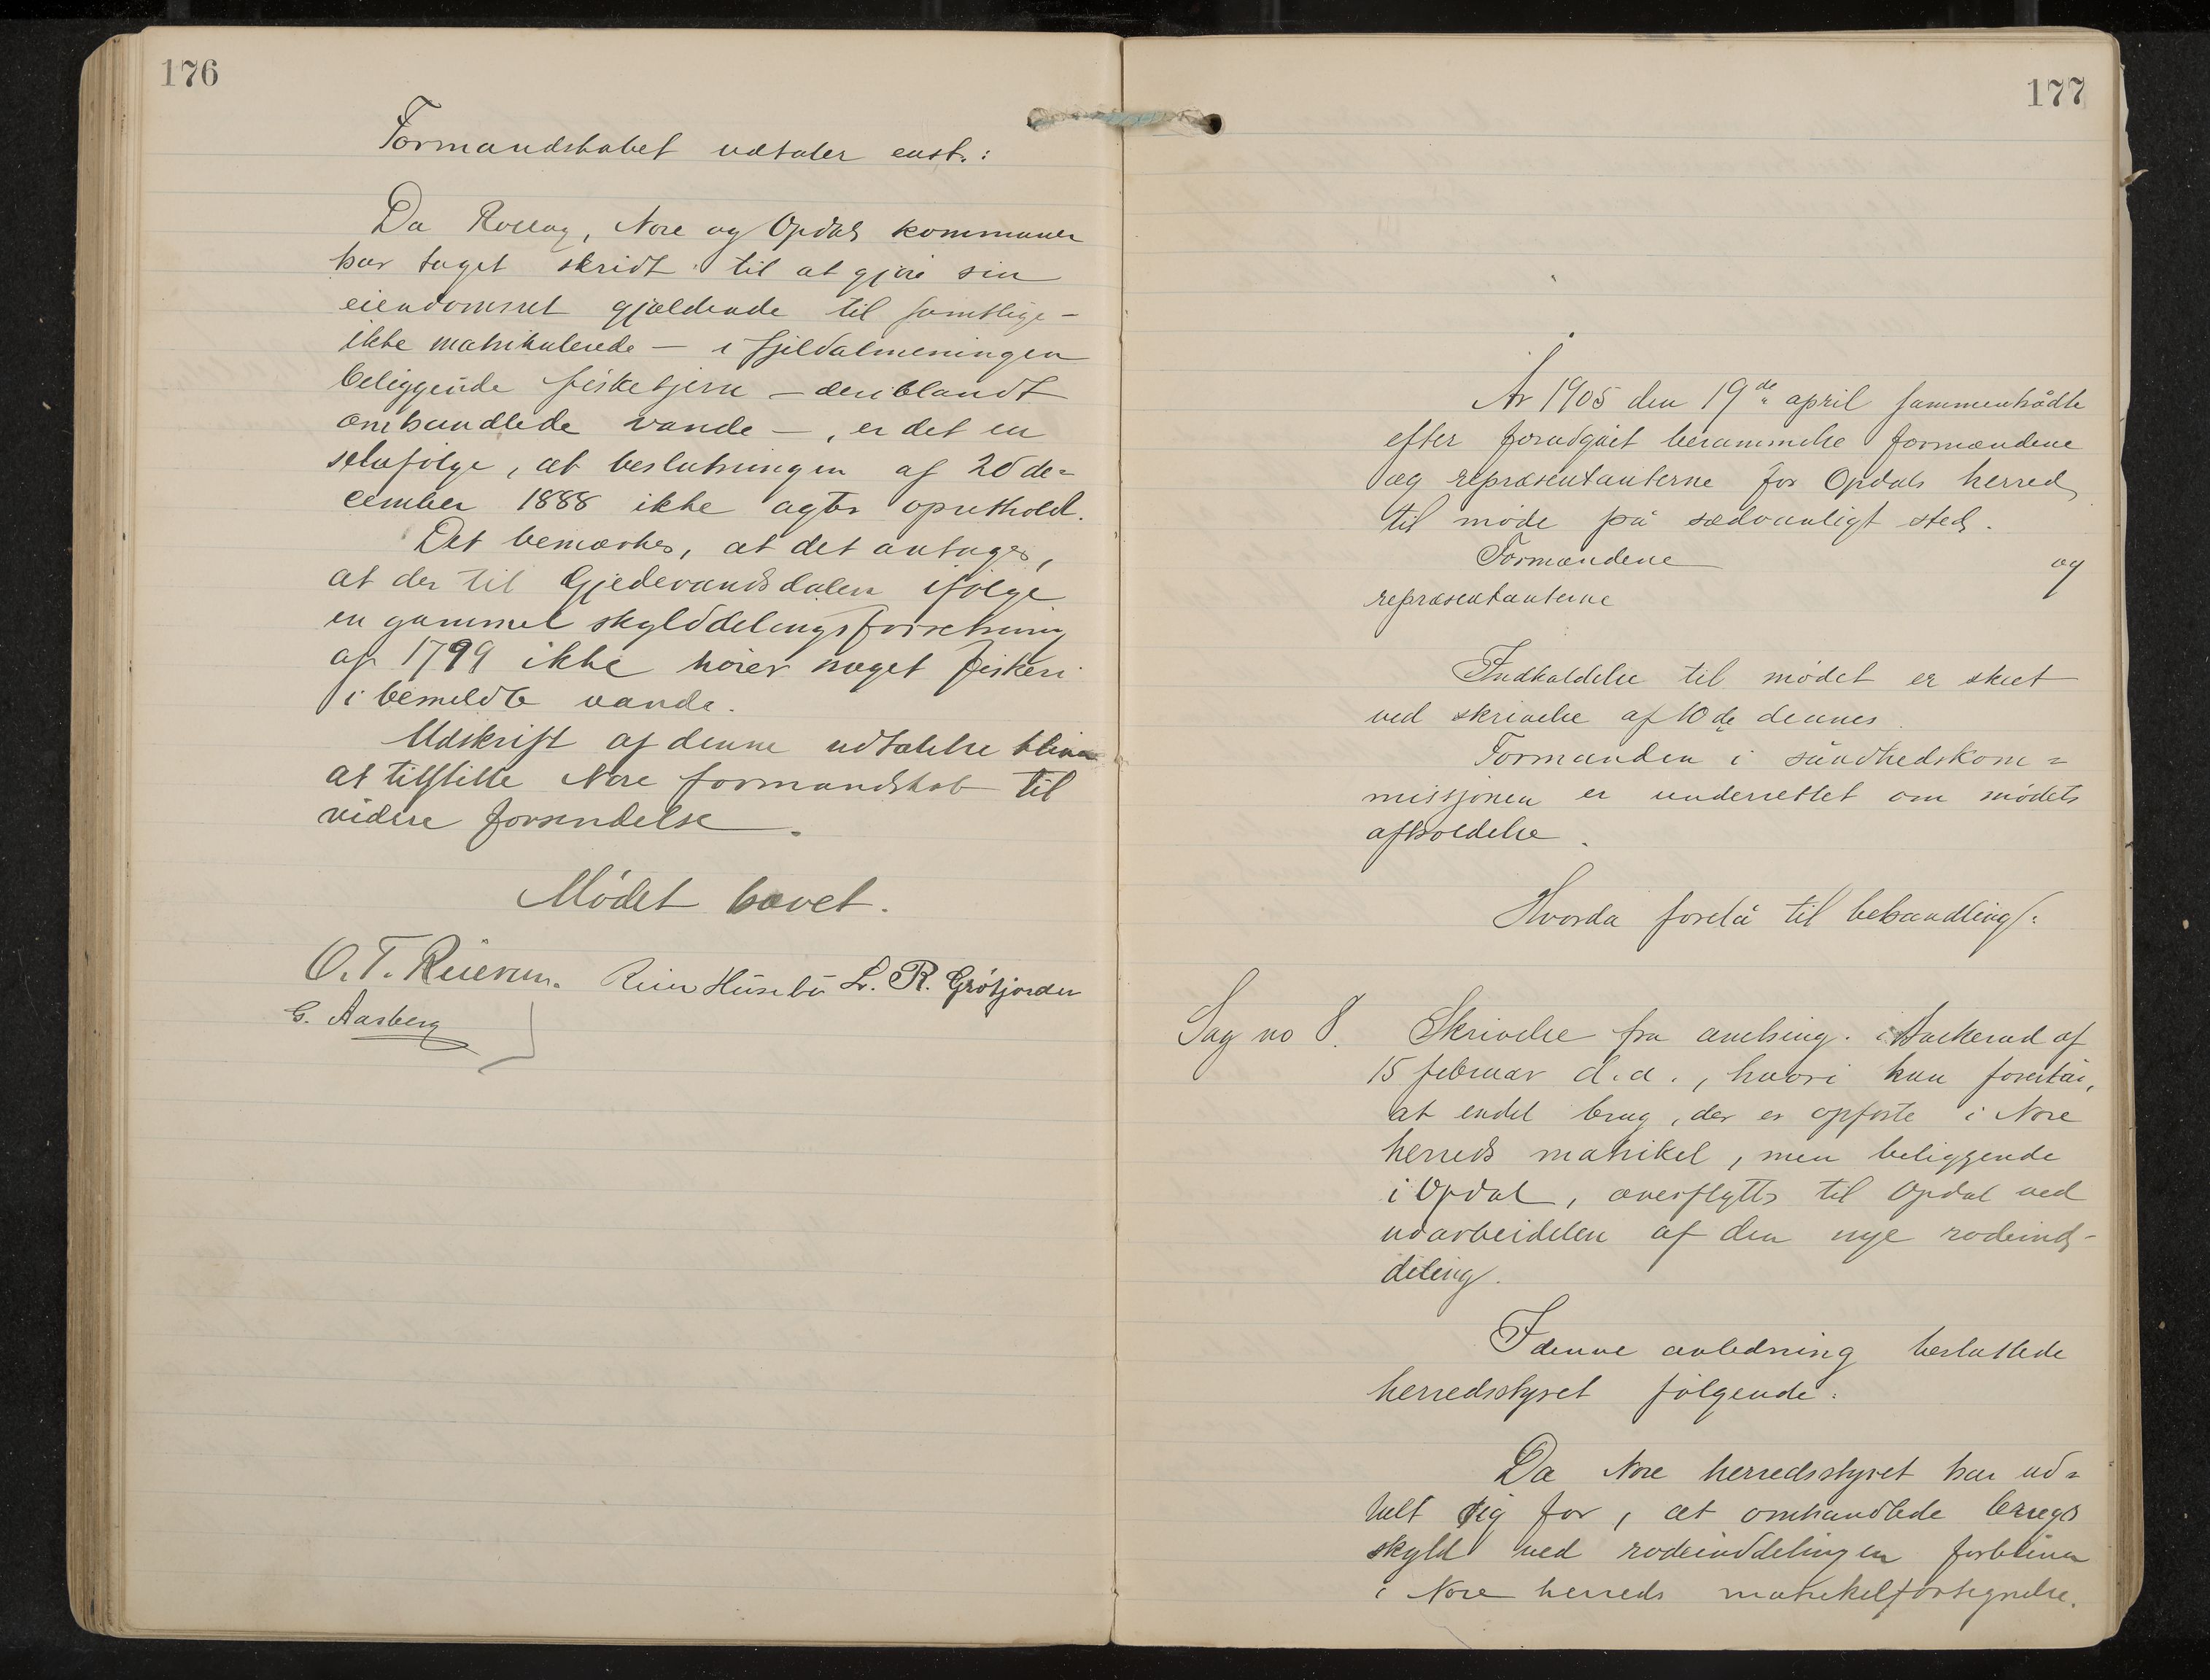 176
Formandskabet udtaler enst.:
Da Rollag, Nore og Opdals kommuner
har taget skridt til at gjøre sin
eiendomsret gjældende til samtlige –
ikke matrikulerede – i fjeldalmeningen
beliggende fisketjern – deriblandt
omhandlede vande –, er det en
selvfølge, at beslutningen af 20 de-
cember 1888 ikke agtes oprethold.
Det bemærkes, at det antages,
at der til Gjedevandsdalen ifølge
en gammel skylddelingsforretning
af 1799 ikke hører noget fiskeri
i bemeldte vande.
Udskrift af denne udtalelse bliver
at tilstille Nore formandskab til
videre forsendelse.
Mødet hævet.
O. T. Reiersen. Reier Husebø L. R. Grøtjorden
G. Aasberg
177
År 1905 den 19de april sammentrådte
efter forudgået berammelse formændene
og repræsentanterne for Opdals herred
til møde på sædvanligt sted.
Formændene og
repræsentanterne
Indkaldelse til mødet er skeet
ved skrivelse af 10de dennes.
Formanden i sundhedskom=
missjonen er underrettet om mødets
afholdelse.
Hvorda forelå til behandling:
Sag no 8. Skrivelse fra amtsing. i Buskerud af
15 februar d.a., hvori han foreslår,
at endel brug, der er opførte i Nore
herreds matrikel, men beliggende
i Opdal, overflyttes til Opdal ved
udarbeidelen af den nye rodeind-
deling.
I denne anledning besluttede
herredsstyret følgende:
Da Nore herredsstyret har ud=
talt sig for, at omhandlede brugs
skyld ved rodeinddelingen forbliver
i Nore herreds matrikelfortegnelse.